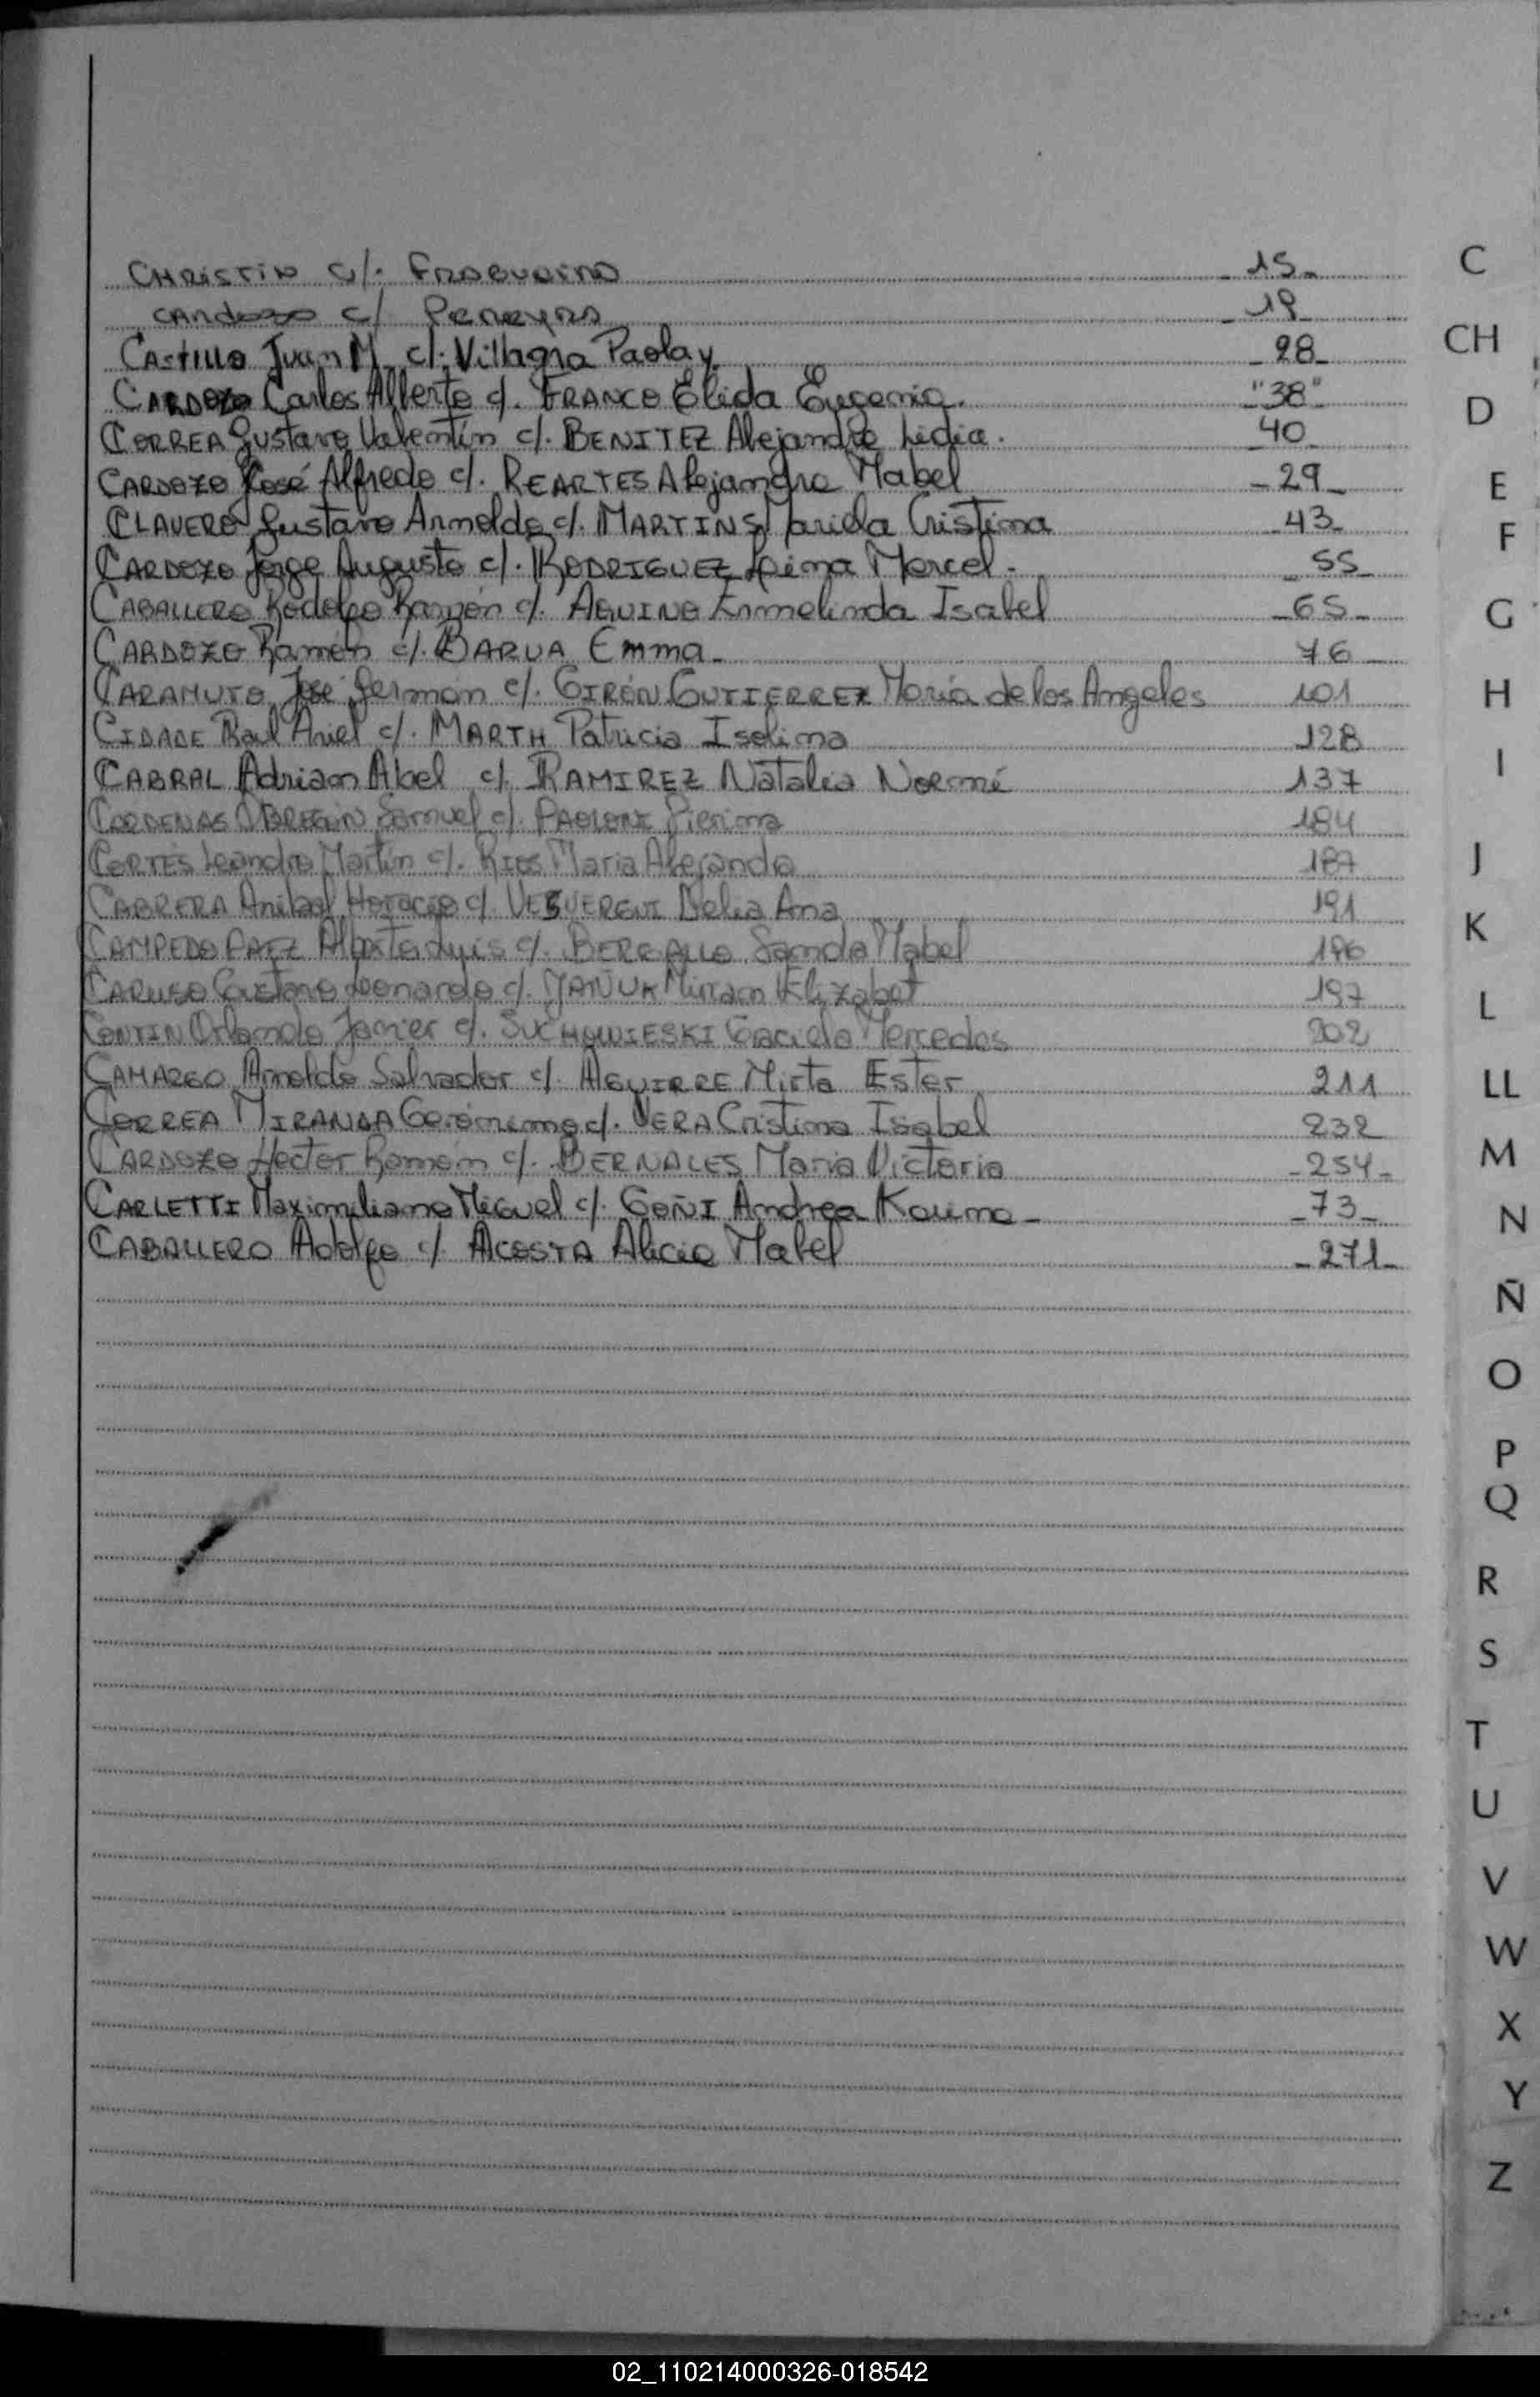 CHRISTIN c/. FRAGUEIRO 15
CARDOZO c/ PEREYRA 18
CASTILLO Juan M. c/. Villagra Paola y. 28
CARDOZO Carlos Alberto c/. FRANCO Elida Eugenia. "38"
CORREA Gustavo Valentín c/. BENITEZ Alejandra Lidia. 40
CARDOZO José Alfredo c/. REARTES Alejandra Mabel 29
CLAVERO Gustavo Arnoldo c/. MARTINS Mariela Cristina 43
CARDOZO Jorge Augusto c/. RODRIGUEZ Marcel. 55
CABALLERO Rodolfo Ramón c/. AQUINO Ermelinda Isabel 65
CARDOZO Ramón c/. BARUA Emma 76
CARAMUTO José Germán c/. GIRÓN GUTIERREZ María de los Angeles 101
CIDADE Raul Ariel c/. MARTH Patricia Isolina 128
CABRAL Adrian Abel c/. RAMIREZ Natalia Noemí 137
CARDENAS OBREGÓN Samuel c/. PAOLONI Pierina 184
CORTÉS Leandro Martín c/. RIOS Maria Alejanda 187
CABRERA Anibal Horacio c/. Delia Ana 191
CAMPEDO PAEZ Alberto Luis c/. BERGALLO Sanda Mabel 196
CARUSO Gustavo Leonardo c/. YAÑUK Miriam Elizabet 197
CONTIN Orlando Javier c/. SUCHOWIESKI Graciela Mercedes 202
CAMARGO Arnoldo Salvador c/. AGUIRRE Mirta Ester 211
CORREA MIRANDA Gerónimo c/. VERA Cristina Isabel 232
CARDOZO Hector Ramon c/. BERNALES Maria Victoria 254
CARLETTI Maximiliano Miguel c/. GOÑI Andrea Karina 73
CABALLERO Adolfo c/ ACOSTA Alicia Mabel 271
C
CH
D
E
F
G
H
I
J
K
L
LL
M
N
Ñ
O
P
Q
R
S
T
U
V
W
X
Y
Z
02_110214000326-018542